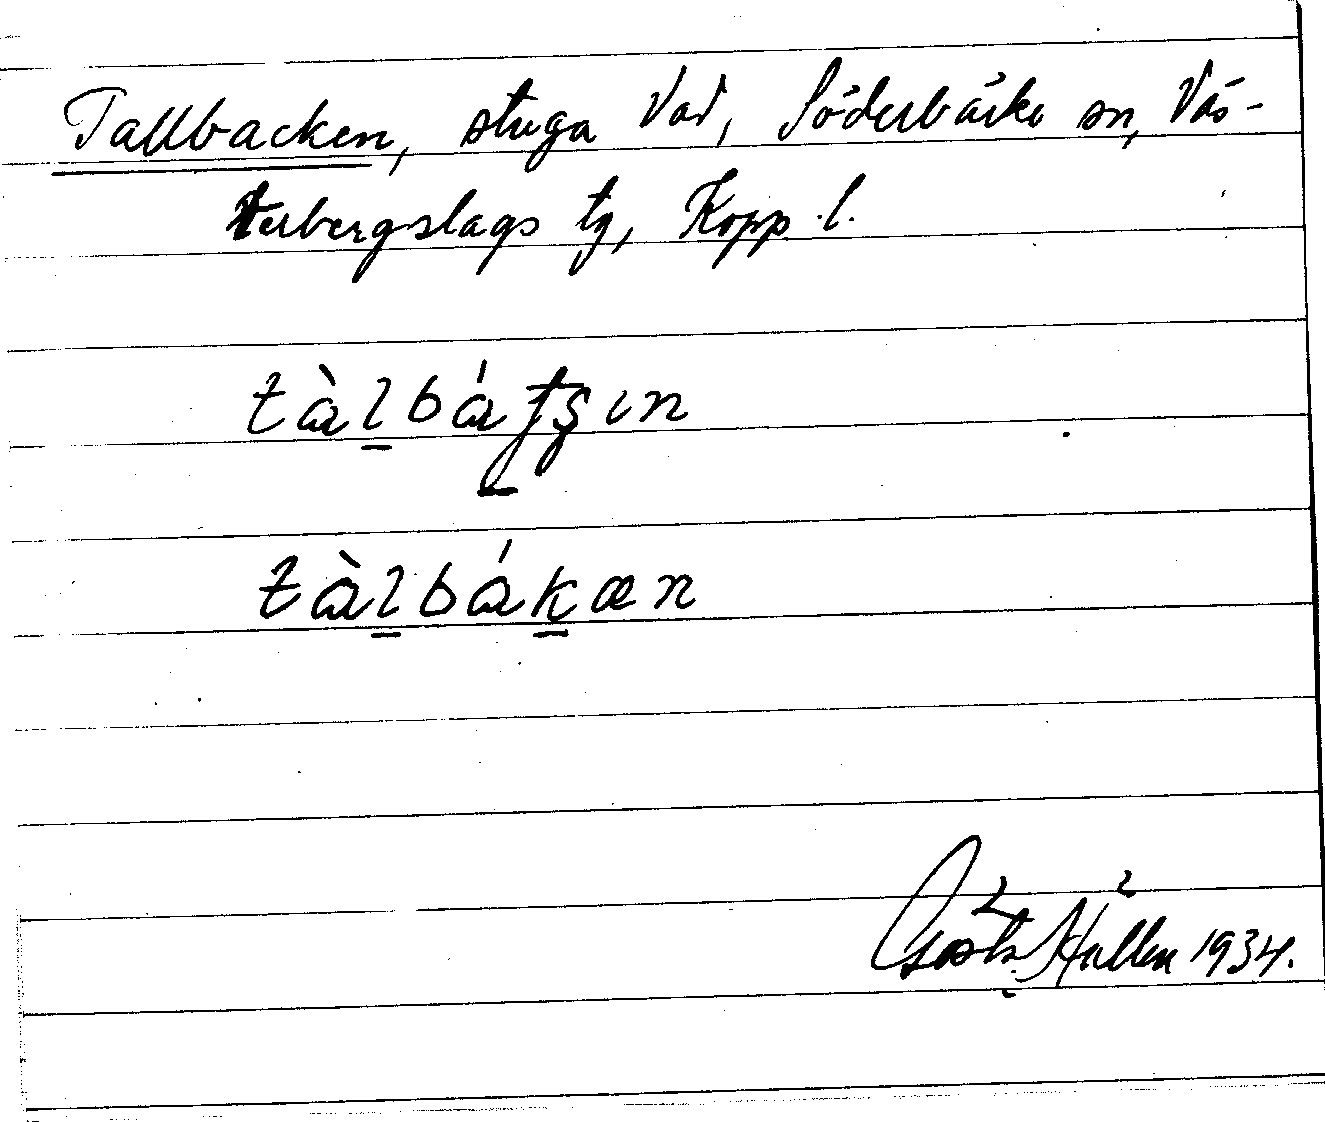 Tallbacken, stuga Vad, Söderbärke sn, Väs-
terbergslags tg, Kopp. l.
tàl̠bátʂın
tàl̠bák̠æn
Gösta Hallén 1934.